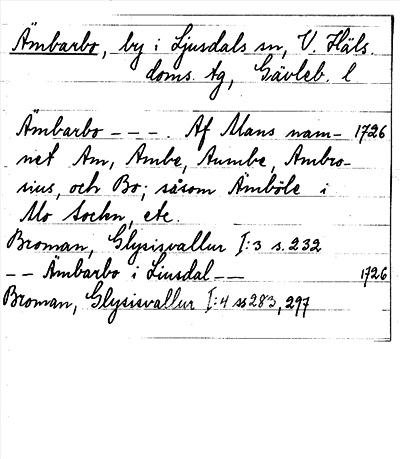 Ämbarbo, by i Ljusdals sn, V. Häls.
doms. tg, Gävleb. l
Ämbarbo - - - . Af Mans nam- 1726
net Am, Ambe, Aumbe, Ambro-
sius, och Bo; såsom Ämböle i
Mo Sockn, etc.
Broman, Glysisvallur I:3 s. 232
- - Ämbarbo i Liusdal - - 1726
Broman, Glysisvallur I:4 ss 283, 297